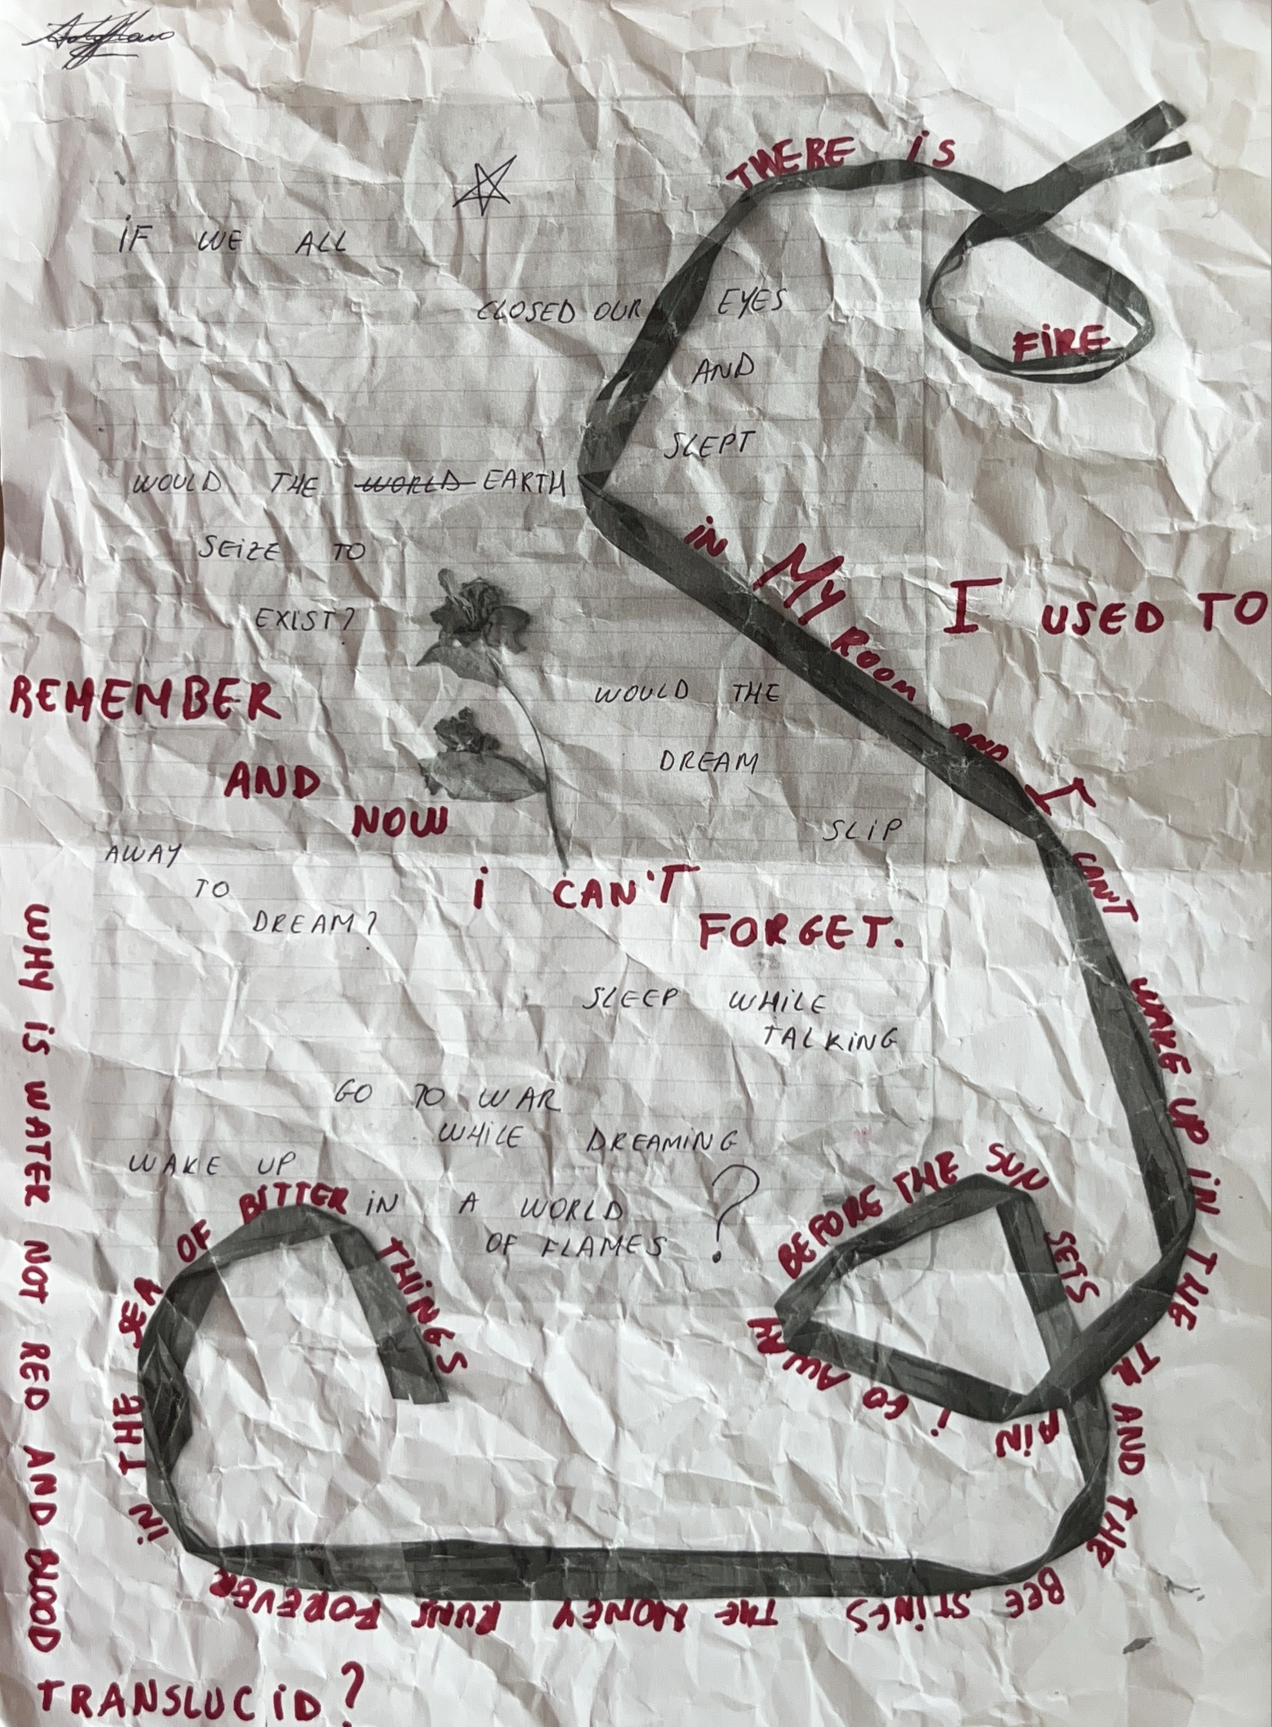 IF WE ALL
CLOSED OUR EYES
AND
SLEPT
WOULD THE WORLD EARTH
SEiZE TO
EXIST?
WOULD THE
DREAM
SLiP
AWAY
TO
DREAM?
SLEEP WHiLE
TALKiNG
GO TO WAR
WHiLE DREAMING
WAKE UP
iN A WORLD
OF FLAMES ?
THERE iS
FiRE
in MY ROOM AND I CAN'T WAKE UP iN THE TRAiN
i GO AWAY
BEFORE THE SUN SETS
AND THE BEE STiNGS THE HONEY RUNS FOREVER
iN THE SEA OF BITTER THiNGS
I USED TO
REMEMBER
AND
NOW
i CAN'T
FORGET.
WHY iS WATER NOT RED AND BLOOD
TRANSLUCiD?